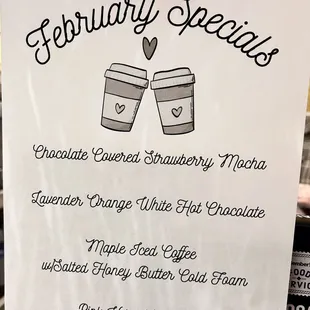 February Specials
Chocolate Covered Strawberry Mocha
Lavender Orange White Hot Chocolate
Maple Iced Coffee
w/Salted Honey Butter Cold Foam